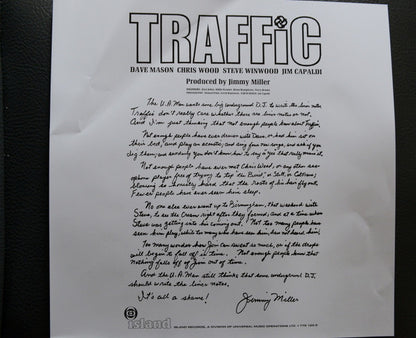 TRAFFiC
DAVE MASON CHRIS WOOD STEVE WINWOOD JIM CAPALDI
Produced by Jimmy Miller
The U.A. Man wants some big underground D.J. to write the liner notes
Traffic don't really care whether there are liner notes or not.
And I'm just thinking that not enough people know about Traffic.
Not enough people have ever driven with Dave, or had him sit on
their bed, and play an acoustic, and sing five new songs, and ask if you
dig them, and make you
Not enough people have ever met Chris Wood, or any other
phone player free of trying to top the Bird, or Stitt, or Coltrane;
blowing so honestly hard that the roots of his hair fly out.
Fewer people have ever seen him sleep.
No one else ever went up to Birmingham, that weekend with
Steve, to see the Cream right after they formed; and at a time when
Steve was getting into his coming out! Not too many people have
seen him play, while too many who have seen him, have not heard him.
Too many wonder how Jim Can sweat so much, or if the drops
will begin to fall off in time. Not enough people know that
nothing falls off of Jim out of time.
And the U.A. Man still thinks that some underground D.J.
should write the liner notes.
It's all a shame!
Jimmy Miller
island
ISLAND RECORDS, A DIVISION OF UNIVERSAL MUSIC OPERATIONS LTD